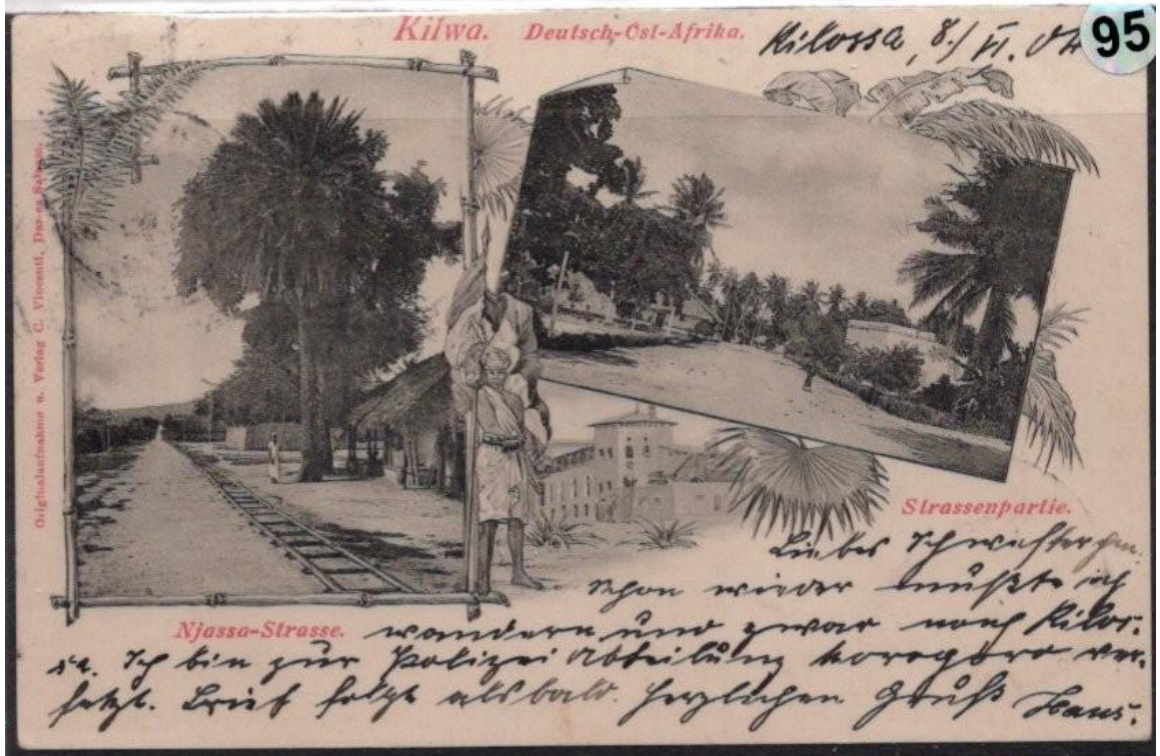 Kilwa. Deutsch-Ost-Afrika.
Kilossa, 8./VI. 04
95
Originalaufnahme u. Verlag C. Vincenti, Dar-es-Salaam.
Strassenpartie.
Liebes Schwesterchen.
Schon wieder mußte ich
Njassa-Strasse.
wandern und zwar nach Kilos-
sa. Ich bin zur Polizei Abteilung Morogoro ver-
setzt. Brief folgt alsbald. Herzlichen Gruß Hans.